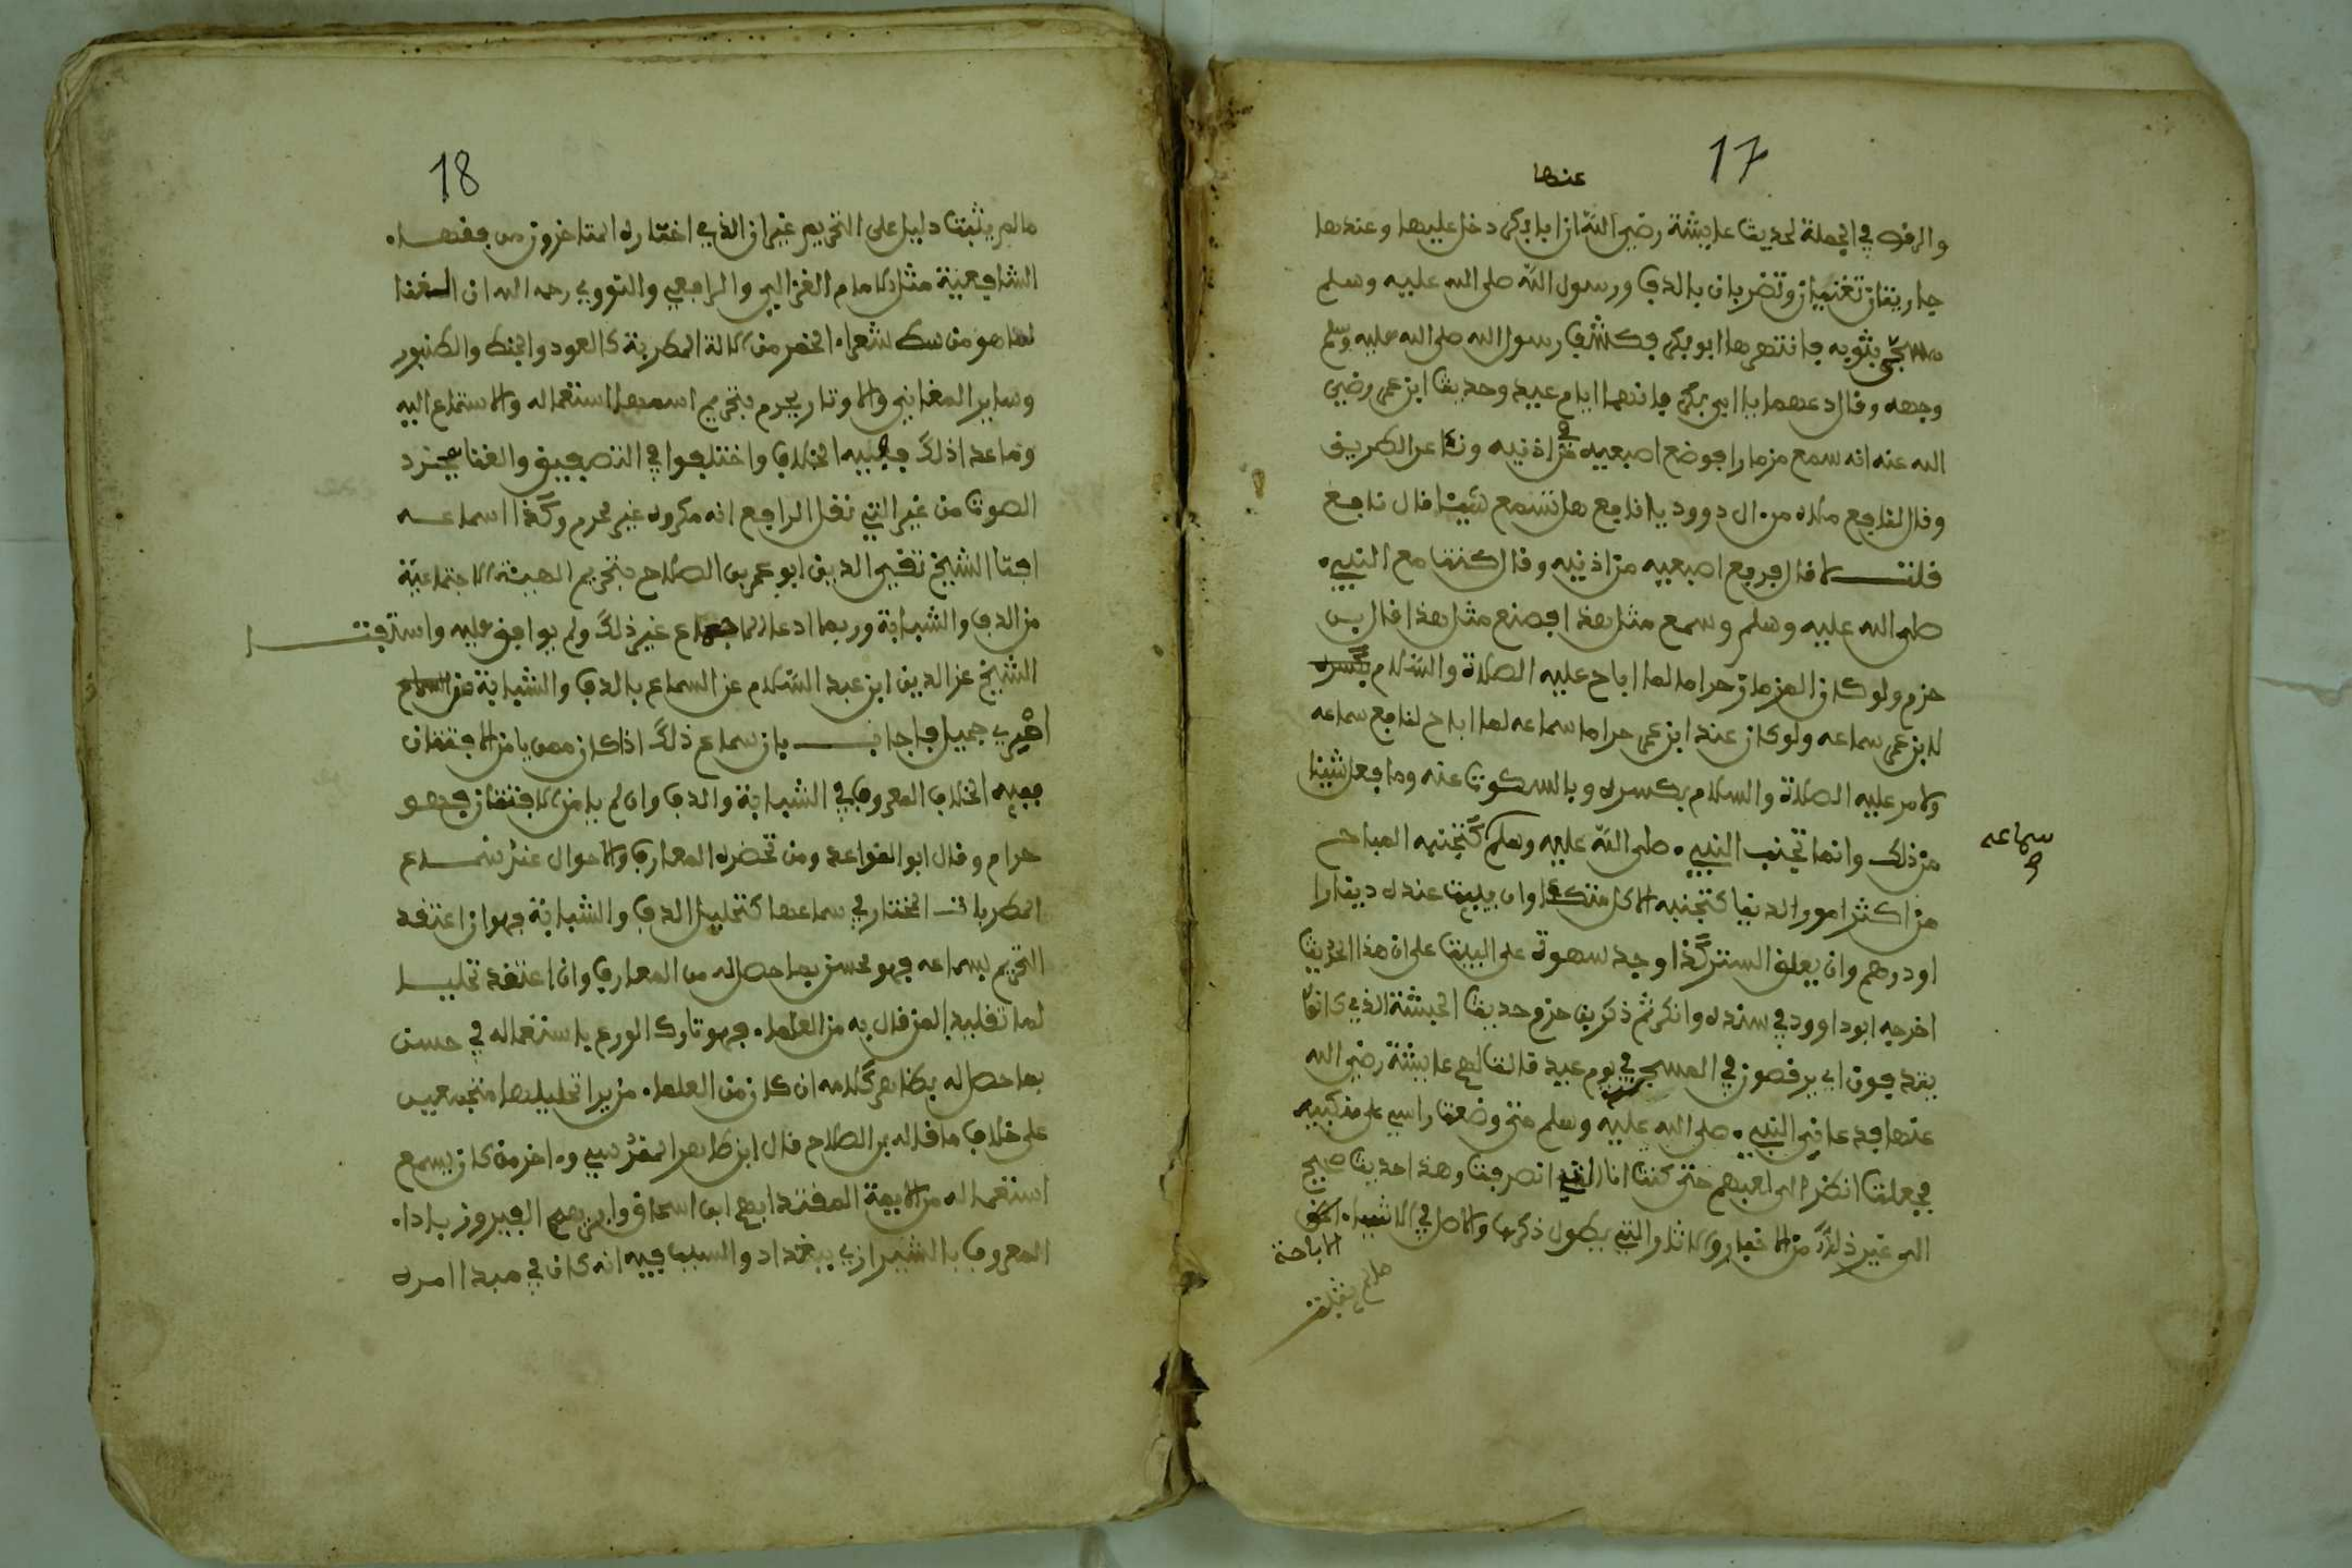 17
عنها
والرقص في الجملة لحديث عايشة رضي الله ان ابا بكر دخل عليها وعندها
جاريتان تغنيان وتضربان بالدف ورسول الله صلى الله عليه وسلم
مسجى بثوبه فانتهرها ابو بكر فكشف رسول الله صلى الله عليه وسلم
وجهه وقال دعهما يا ابى بكر فانهما ايام عيد وحديث ابن عمر رضي
الله عنه انه سمع مزمارا فوضع اصبعيه في اذنيه ونا عن الطريق
وقال لنافع يا نافع هل تسمع شيئا قال نافع
قلت لا قال فرفع اصبعيه من اذنيه وقال كنت مع النبي
صلى الله عليه وسلم وسمع مثل هذا فصنع مثل هذا قال بن
حزم ولو كان المزمار حراما لما اباح عليه الصلاة والسلام
لابن عمر سماعه ولو كان عند ابن عمر حراما سماعه لما اباح لنافع سماعه
ولامر عليه الصلاة والسلام بكسره وبالسكوت عنه وما فعل شيئا
من ذلك وانما تجنب النبي صلى الله عليه وسلم كتجنبه المباح
سماعه
من اكثر امور الدنيا كتجنبه الاكل متكئا وان يبيت عنده دينارا
او درهم وان يعلق الستر كذا وجد سهوة على البيت على ان هذا الحديث
اخرجه ابو داوود في سنده وانكر ثم ذكر بن حزم حديث الحبشة الذي كانوا
يتدفون اي يرقصون في المسجد في يوم عيد قالت لهم عايشة رضي الله
عنها فدعاني النبي صلى الله عليه وسلم حتى وضعت راسي على منكبيه
فجعلت انظر الى لعبهم حتى كنت انا التي انصرفت وهذا حديث صحيح
الى غير ذلك من الاخبار والاثار التي يطول ذكرها والاصل في الاشياء
الاباحة
مالم يثبت
18
مالم يثبت دليل على التحريم غير ان الذي اختاره المتاخرون من فقهاء
الشافعية مثل الامام الغزالي والرافعي والنووي رحمه الله ان الغنا
لما هو من شعراء الخمر من الالة المطربة كالعود والجنك والطنبور
وساير المغاني والاوتار يحرم بتحريم اسمها استعماله والاستماع اليه
وما عدا ذلك ففيه الخلاف واختلفوا في التصفيق والغنا بمجرد
الصوت من غير التي نقل الرافع انه مكروه غير محرم وكذا اسماعه
افتا الشيخ تقي الدين ابو عمر بن الصلاح بتحريم الهيئة الاجتماعية
من الدف والشبابة وربما ادعا الاجماع غير ذلك ولم يوافق عليه واستفتا
الشيخ عز الدين ابن عبد السلام عن السماع بالدف والشبابة
جميل فاجاب بان سماع ذلك اذا كان ممن يامن الافتتان
ففيه الخلاف المعروف في الشبابة والدف وان لم يامن الافتتان فهو
حرام وقال ابو القواعد ومن تحضره المعارف والاحوال عند سماع
المطربات المختار في سماعها كتحليل الدف والشبابة فهو ان اعتقد
التحريم بسماعه فهو محسن بما حصل له من المعارف وان اعتقد تحليلـ
لها تقليدا لمن قال به من العلماء فهو تارك الورع باستعماله في حسن
بما حصل له بظاهر كلامه ان كان من العلماء من يرا تحليلها مجتمعين
على خلاف ما قاله بن الصلاح قال ابن طاهر المقدسي واخر من كان يسمع
استعماله من الايمة المقتدا بهم ابى اسحاق وابراهيم الفيروز باداء
المعروف بالشيرازي ببغداد والسبب فيه انه كان في مبدا امره